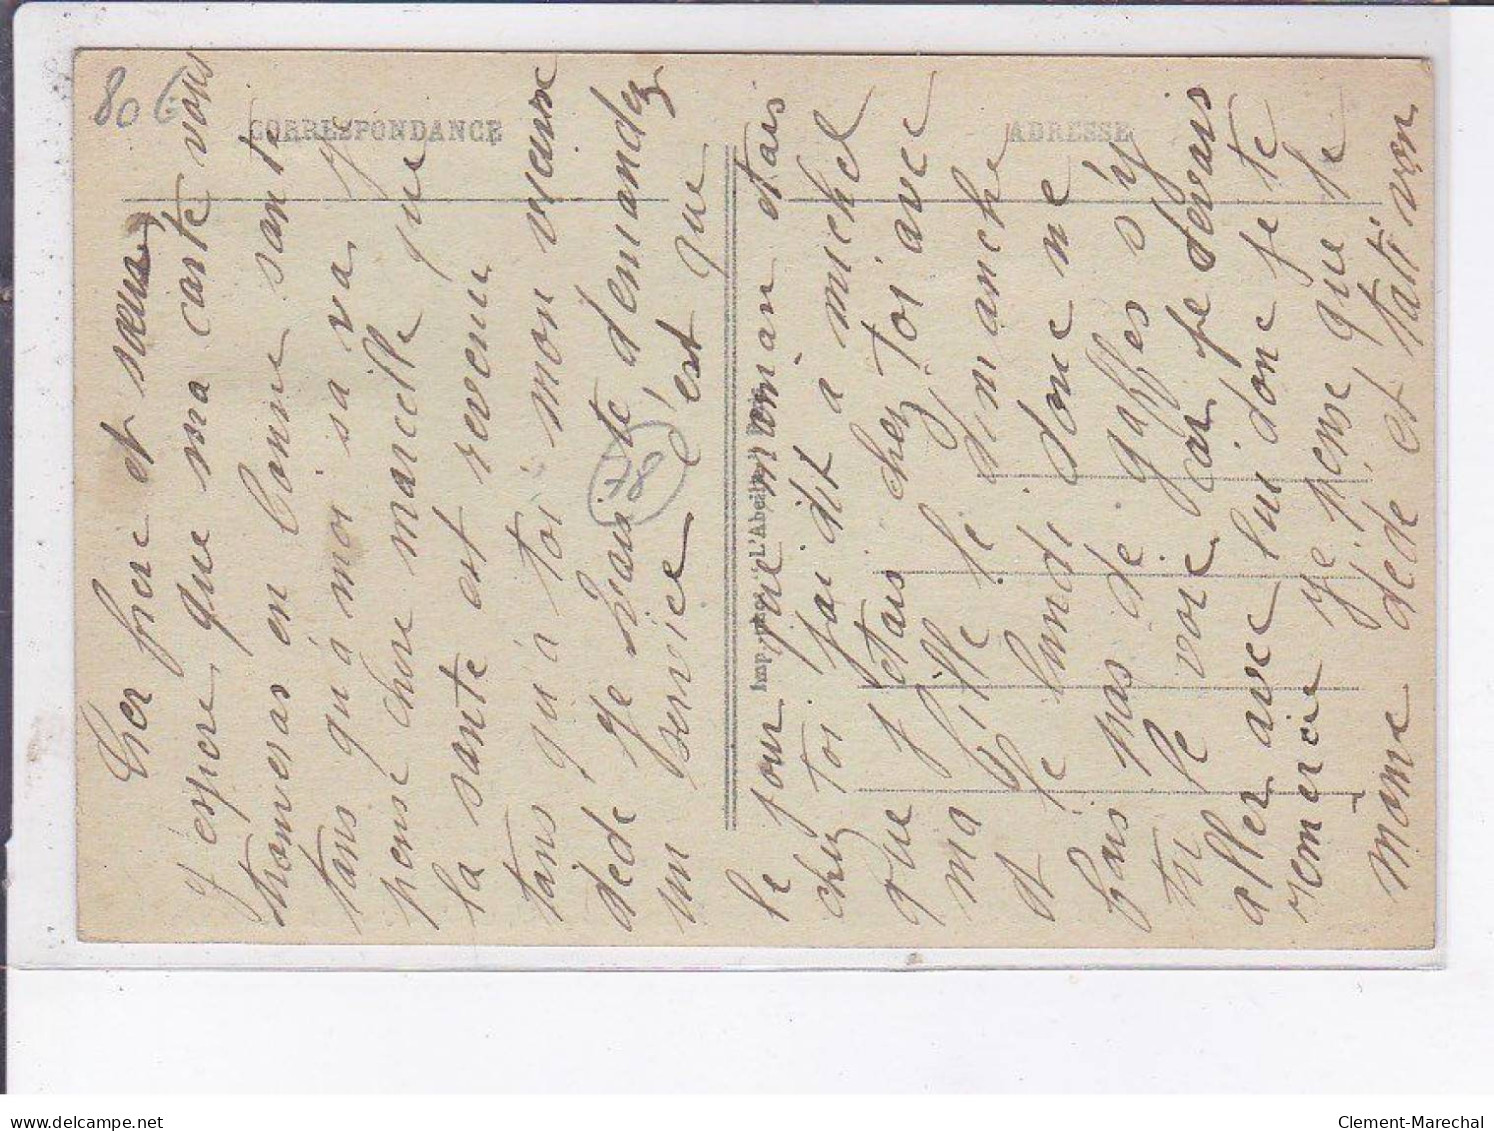 80 €
CORRESPONDANCE
ADRESSE
Cher frere et soeur
j'espere que ma carte vous
trouveras en bonne sante
tans qu'à moi sa va J
pense chere marcelle que
la sante est revenu
tans qu'à toi mon vieux
dede Je vais te demandez
un service c'est que
le jour que maman etais
chez toi jai dit a michel
que j etais chez toi avec
ma fille le dimanche
et le lundi donc ne
fais pas de gaffes s'y
tu le voie car je devais
aller avec lui donc je te
remercie je pense que te
mome dédé et tati von
78
Imp. phot. L'Abeille, Paris
delcampe.net
Clement-Marechal